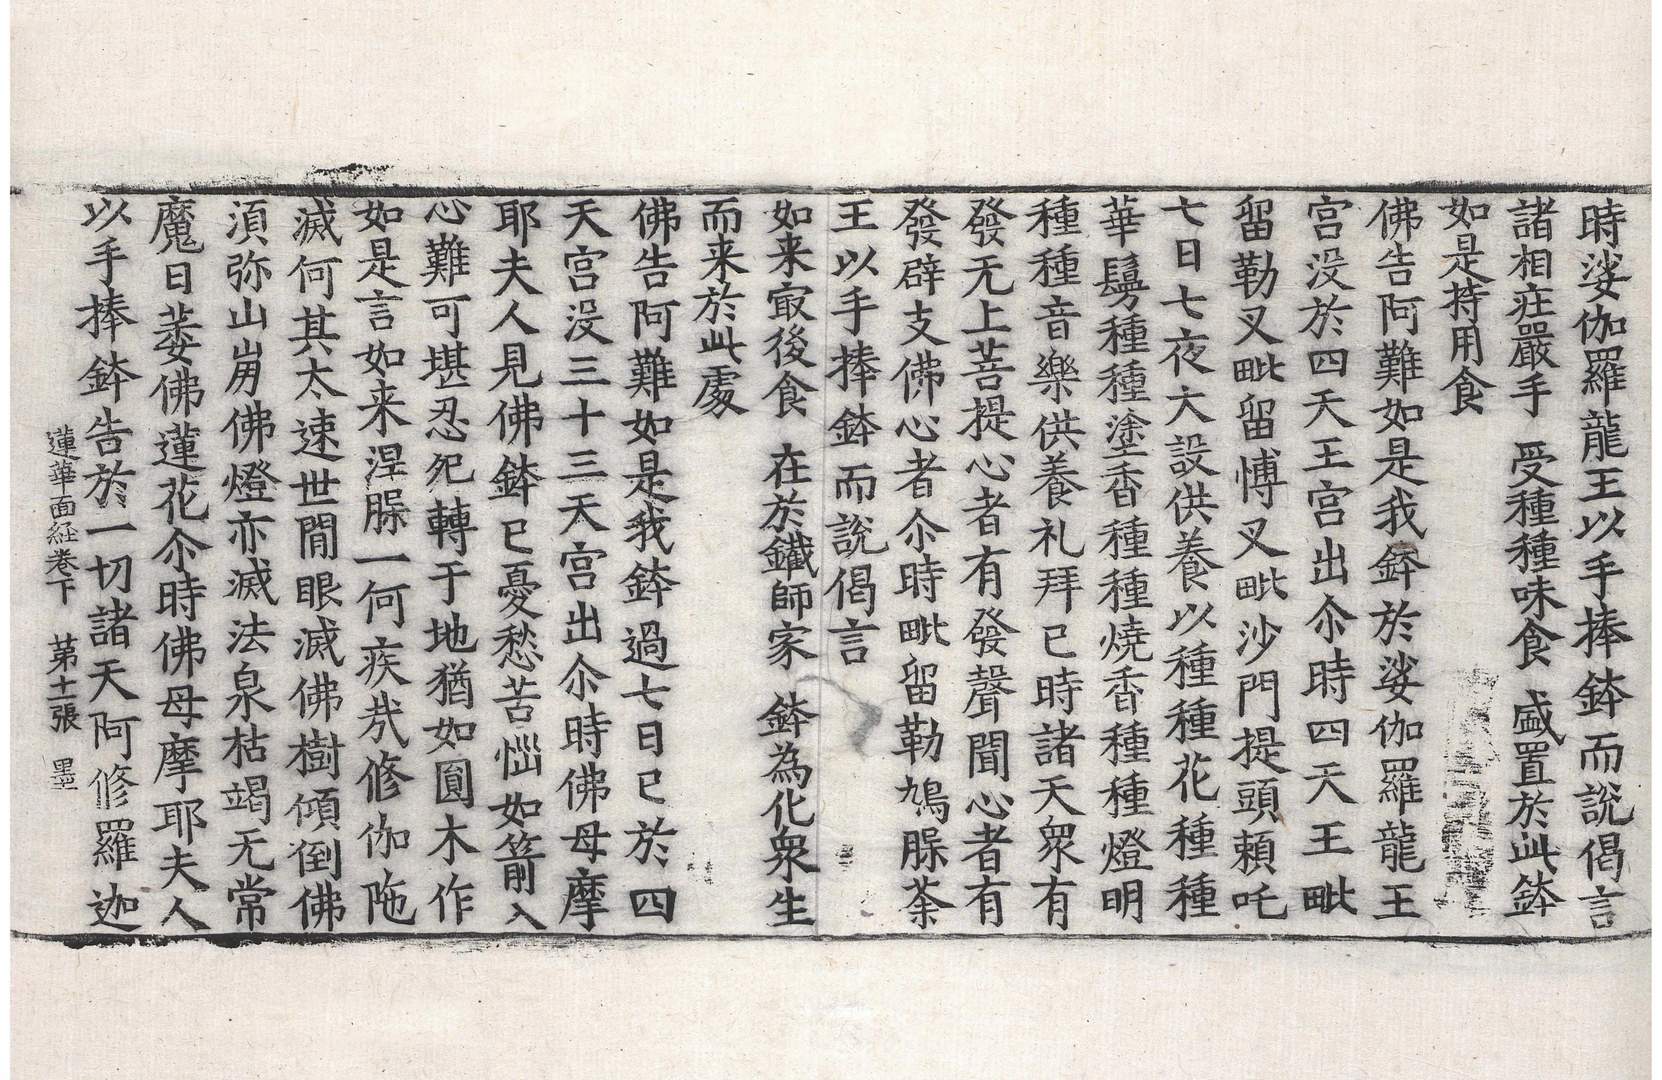 時娑伽羅龍王以手捧鉢而說偈言
諸相庄嚴手　受種種味食　盛置於此鉢
如是持用食
佛告阿難如是我鉢於娑伽羅龍王
宮没於四天王宮出尒時四天王毗
留勒叉毗留愽叉毗沙門提頭賴吒
七日七夜大設供養以種種花種種
華鬘種種塗香種種燒香種種燈明
種種音樂供養礼拜已時諸天衆有
發无上菩提心者有發聲聞心者有
發辟支佛心者尒時毗留勒鳩䐗荼
王以手捧鉢而說偈言
如来㝡後食　在於鐵師家　鉢為化衆生
而来於此處
佛告阿難如是我鉢過七日已於四
天宮没三十三天宮出尒時佛母摩
耶夫人見佛鉢已憂愁苦惱如箭入
心難可堪忍宛轉于地猶如圓木作
如是言如来涅䐗一何疾㢤修伽陁
滅何其太速世間眼滅佛樹傾倒佛
須弥山崩佛燈亦滅法泉枯竭无常
魔日萎佛蓮花尒時佛母摩耶夫人
以手捧鉢告於一切諸天阿修羅迦
蓮華面経卷下　第十一張　墨